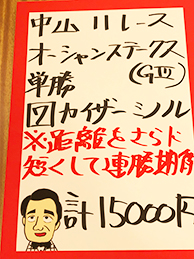 中山11レース
オーシャンステークス
単勝 (GⅢ)
図カイザーミノル
※距離をさらに
短くして連勝期待
計15000円